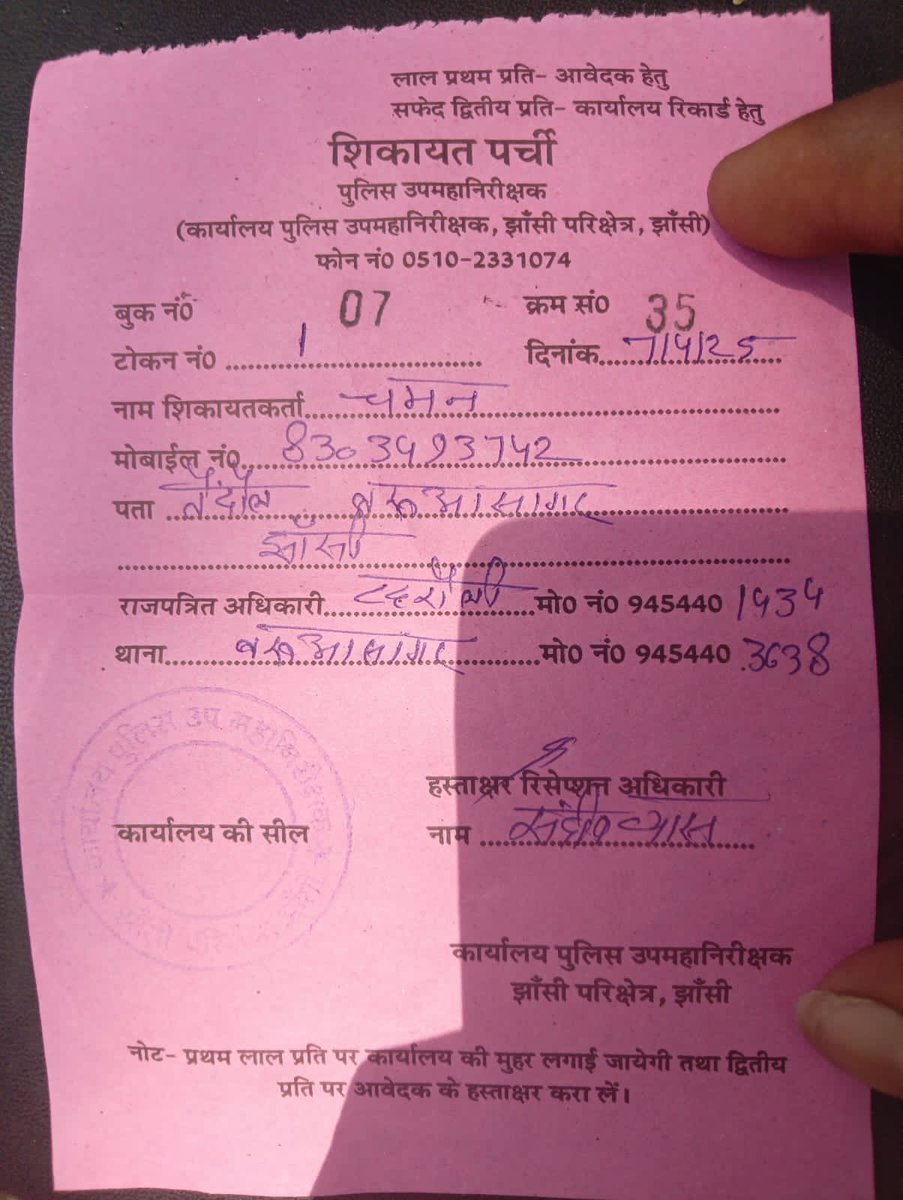 लाल प्रथम प्रति- आवेदक हेतु
सफेद द्वितीय प्रति- कार्यालय रिकार्ड हेतु
शिकायत पर्ची
पुलिस उपमहानिरीक्षक
(कार्यालय पुलिस उपमहानिरीक्षक, झाँसी परिक्षेत्र, झाँसी)
फोन नं0 0510-2331074
बुक नं0 07 क्रम सं0 35
टोकन नं0 1 दिनांक 7/4/25
नाम शिकायतकर्ता चमन
मोबाईल नं0
पता बरूआसागर
झाँसी
राजपत्रित अधिकारी टहरौली मो0 नं0 945440 1434
थाना बरूआसागर मो0 नं0 945440 3638
हस्ताक्षर रिसेप्शन अधिकारी
कार्यालय की सील नाम संदीप व्यास
कार्यालय पुलिस उप महानिरीक्षक
कार्यालय पुलिस उपमहानिरीक्षक
झाँसी परिक्षेत्र, झाँसी
नोट- प्रथम लाल प्रति पर कार्यालय की मुहर लगाई जायेगी तथा द्वितीय
प्रति पर आवेदक के हस्ताक्षर करा लें।